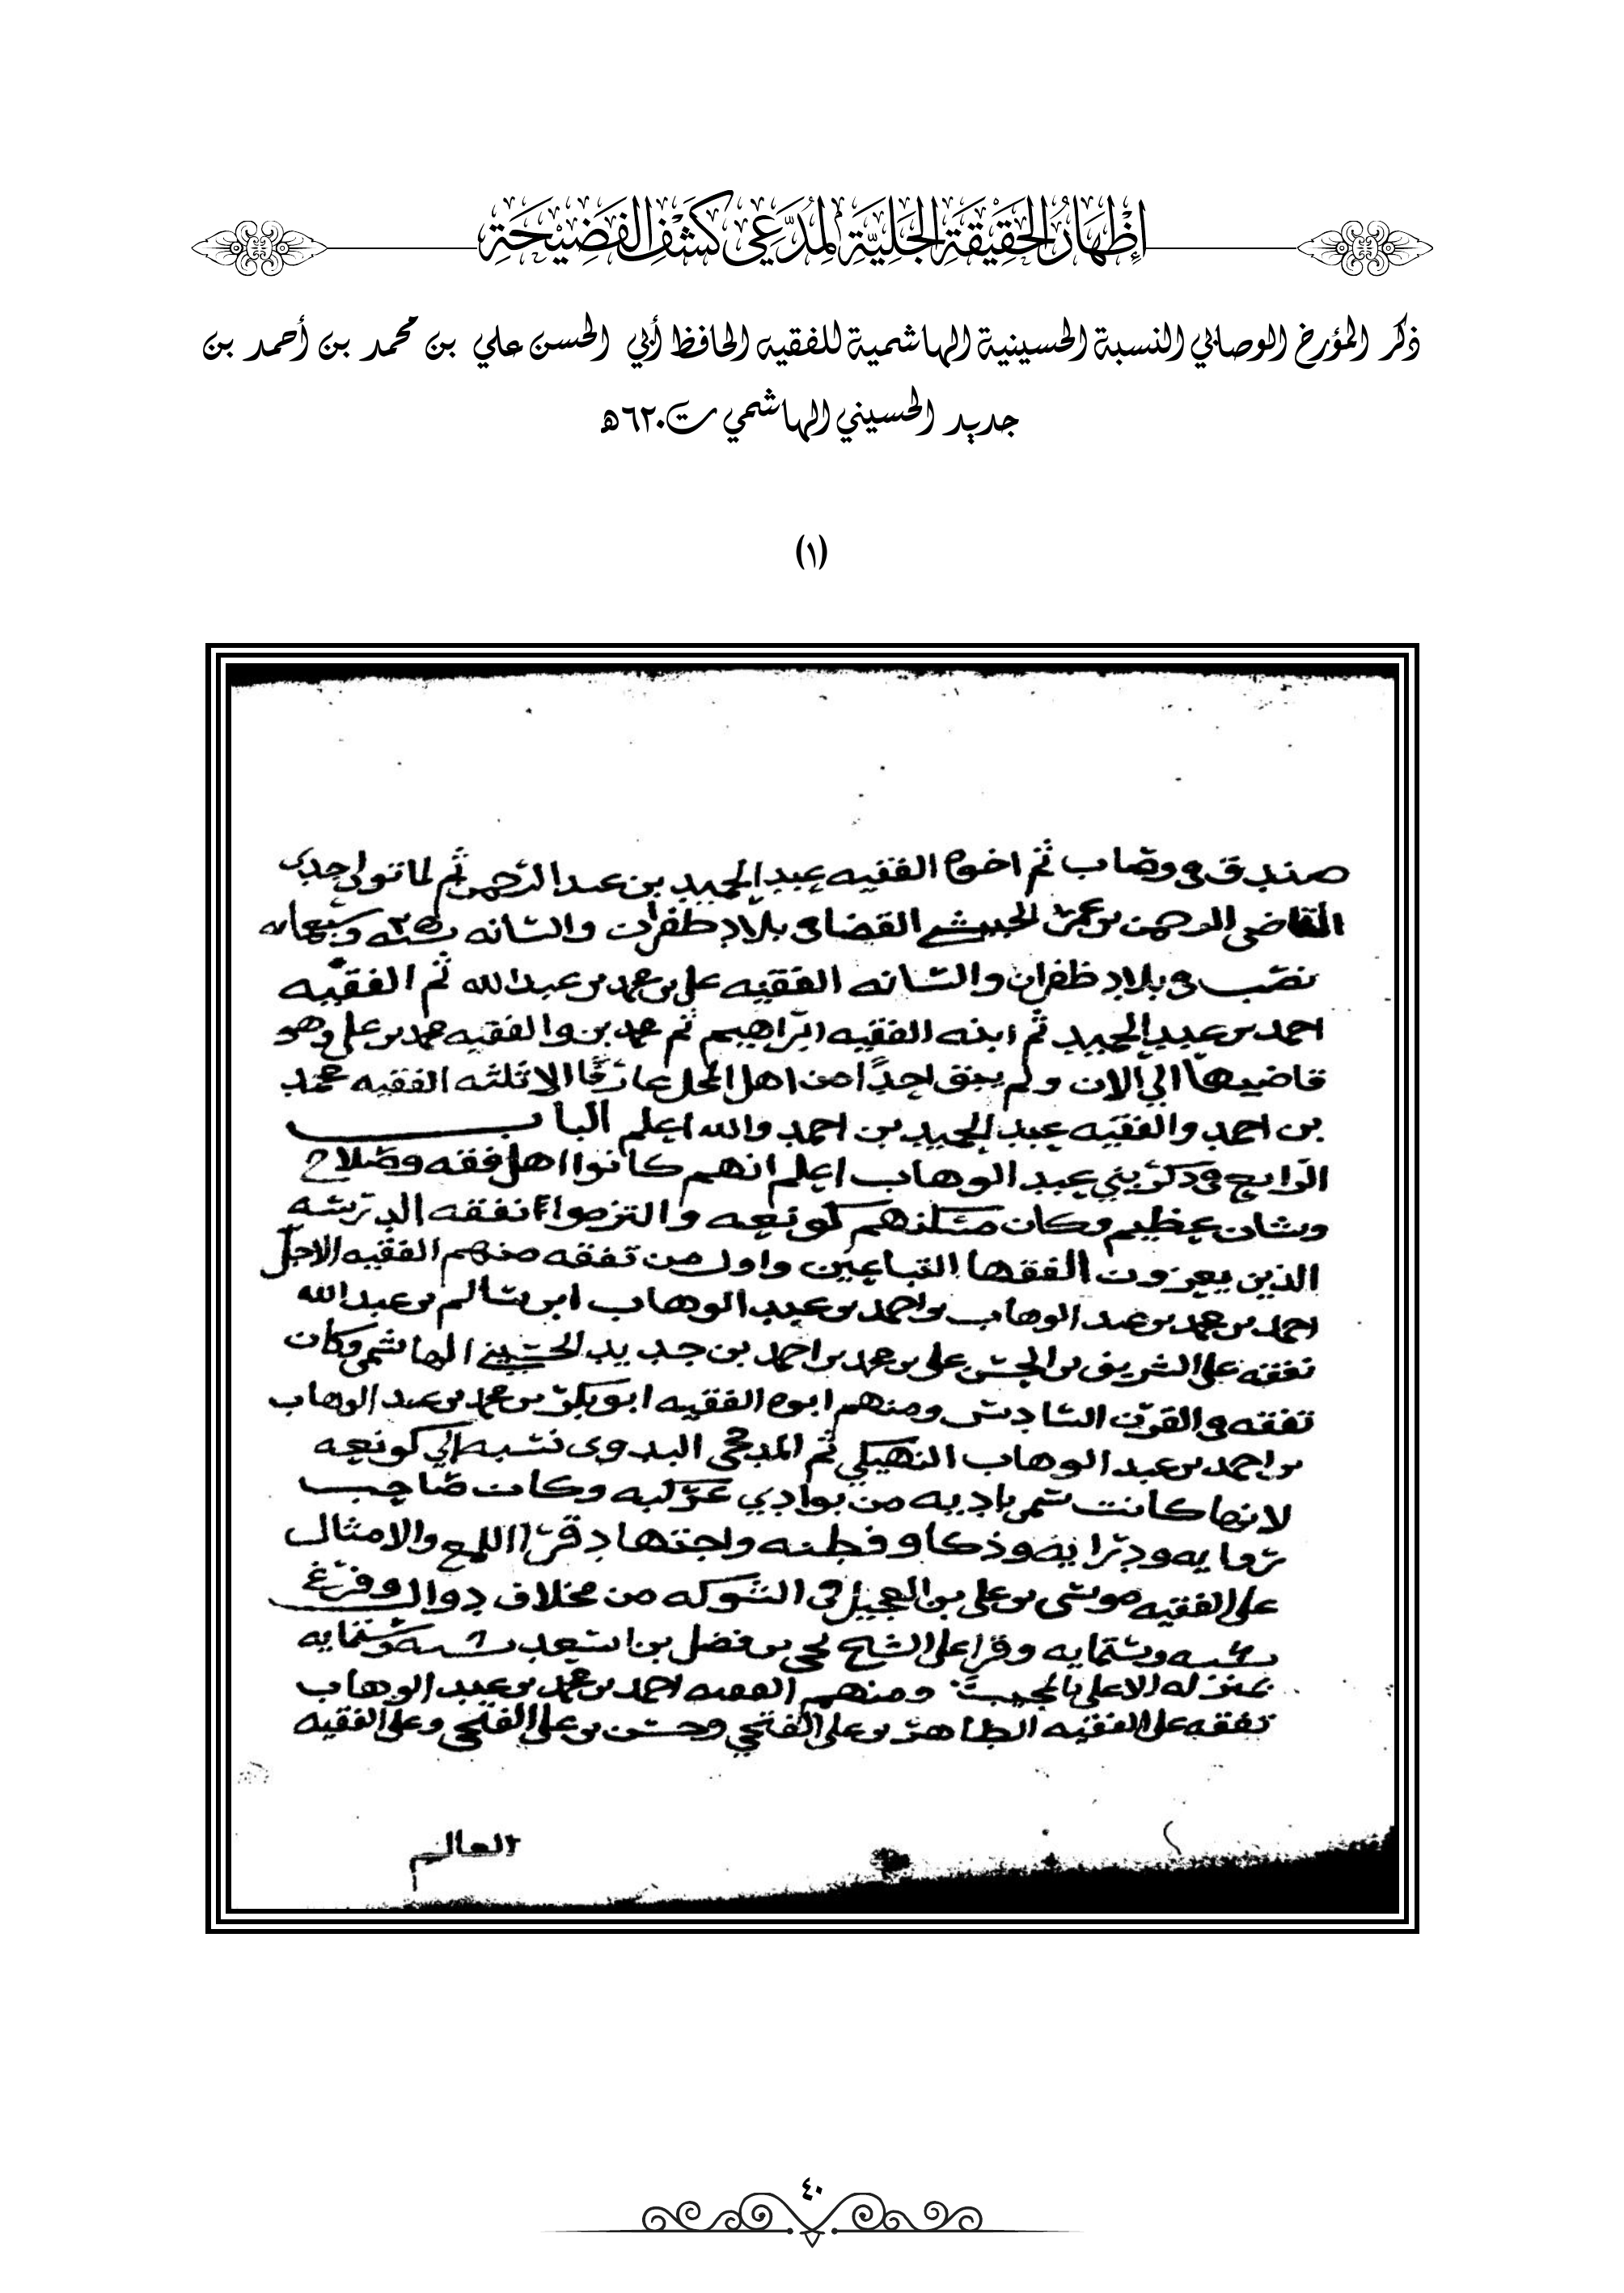 إِظْهَارُ الحَقِيْقَةِ الجَلِيَّةِ لِمُدَّعِي كَشْفِ الفَضِيْحَةِ
ذكر المؤرخ الوصابي النسبة الحسينية الهاشمية للفقيه الحافظ أبي الحسن علي بن محمد بن أحمد بن
جديد الحسيني الهاشمي ت٦٢٠هـ
(١)
صندق في وصاب ثم اخوه الفقيه عبد الحميد بن عبد الرحمن ثم لما تولى جدي
القاضي الرحمن بن عمر الحبيشي القضا في بلاد ظفران والشانه سنة وسبعمايه
نصب في بلاد ظفران والشانه الفقيه علي بن محمد بن عبد الله ثم الفقيه
احمد بن عبد الحميد ثم ابنه الفقيه ابراهيم ثم محمد بن والفقيه محمد بن علي وهو
قاضيها الي الان ولم يبق احدًا من اهل المحل عارفًا الا ثلثه الفقيه محمد
بن احمد والفقيه عبد الحميد بن احمد والله اعلم الباب
الرابع في ذكر بني عبد الوهاب اعلم انهم كانوا اهل فقه وصلاح
وشان عظيم وكان مسكنهم كونعه والتزموا نفقه الدرسه
الذين يعزون الفقها التباعيين واول من تفقه منهم الفقيه الاجل
احمد بن محمد بن عبد الوهاب بن احمد بن عبد الوهاب ابن سالم بن عبد الله
تفقه على الشريف بن الحسن علي بن محمد بن احمد بن جديد الحسيني الهاشمي وكان
تفقه في القرن السادس ومنهم ابوه الفقيه ابو بكر بن محمد بن عبد الوهاب
بن احمد بن عبد الوهاب النهيكي ثم المذحجي البدوي نسبه الي كونعه
لانها كانت تسمى باديه من بوادي عركبه وكان صاحب
روايه ودرايه وذكا وفطنه واجتهاد قرا اللمع والامثال
على الفقيه موسى بن علي بن العجيل في الشوكه من مخلاف دوال وفرغ
سنه وستمايه وقرا على الشيخ يحي بن فضل بن اسعد سنه وستمايه
بمنزله الاعلى ومنهم الفقيه احمد بن محمد بن عبد الوهاب
تفقه على الفقيه الطاهر بن علي الفتحي وحسن بن علي الفتحي وعلى الفقيه
العالم
٤٠